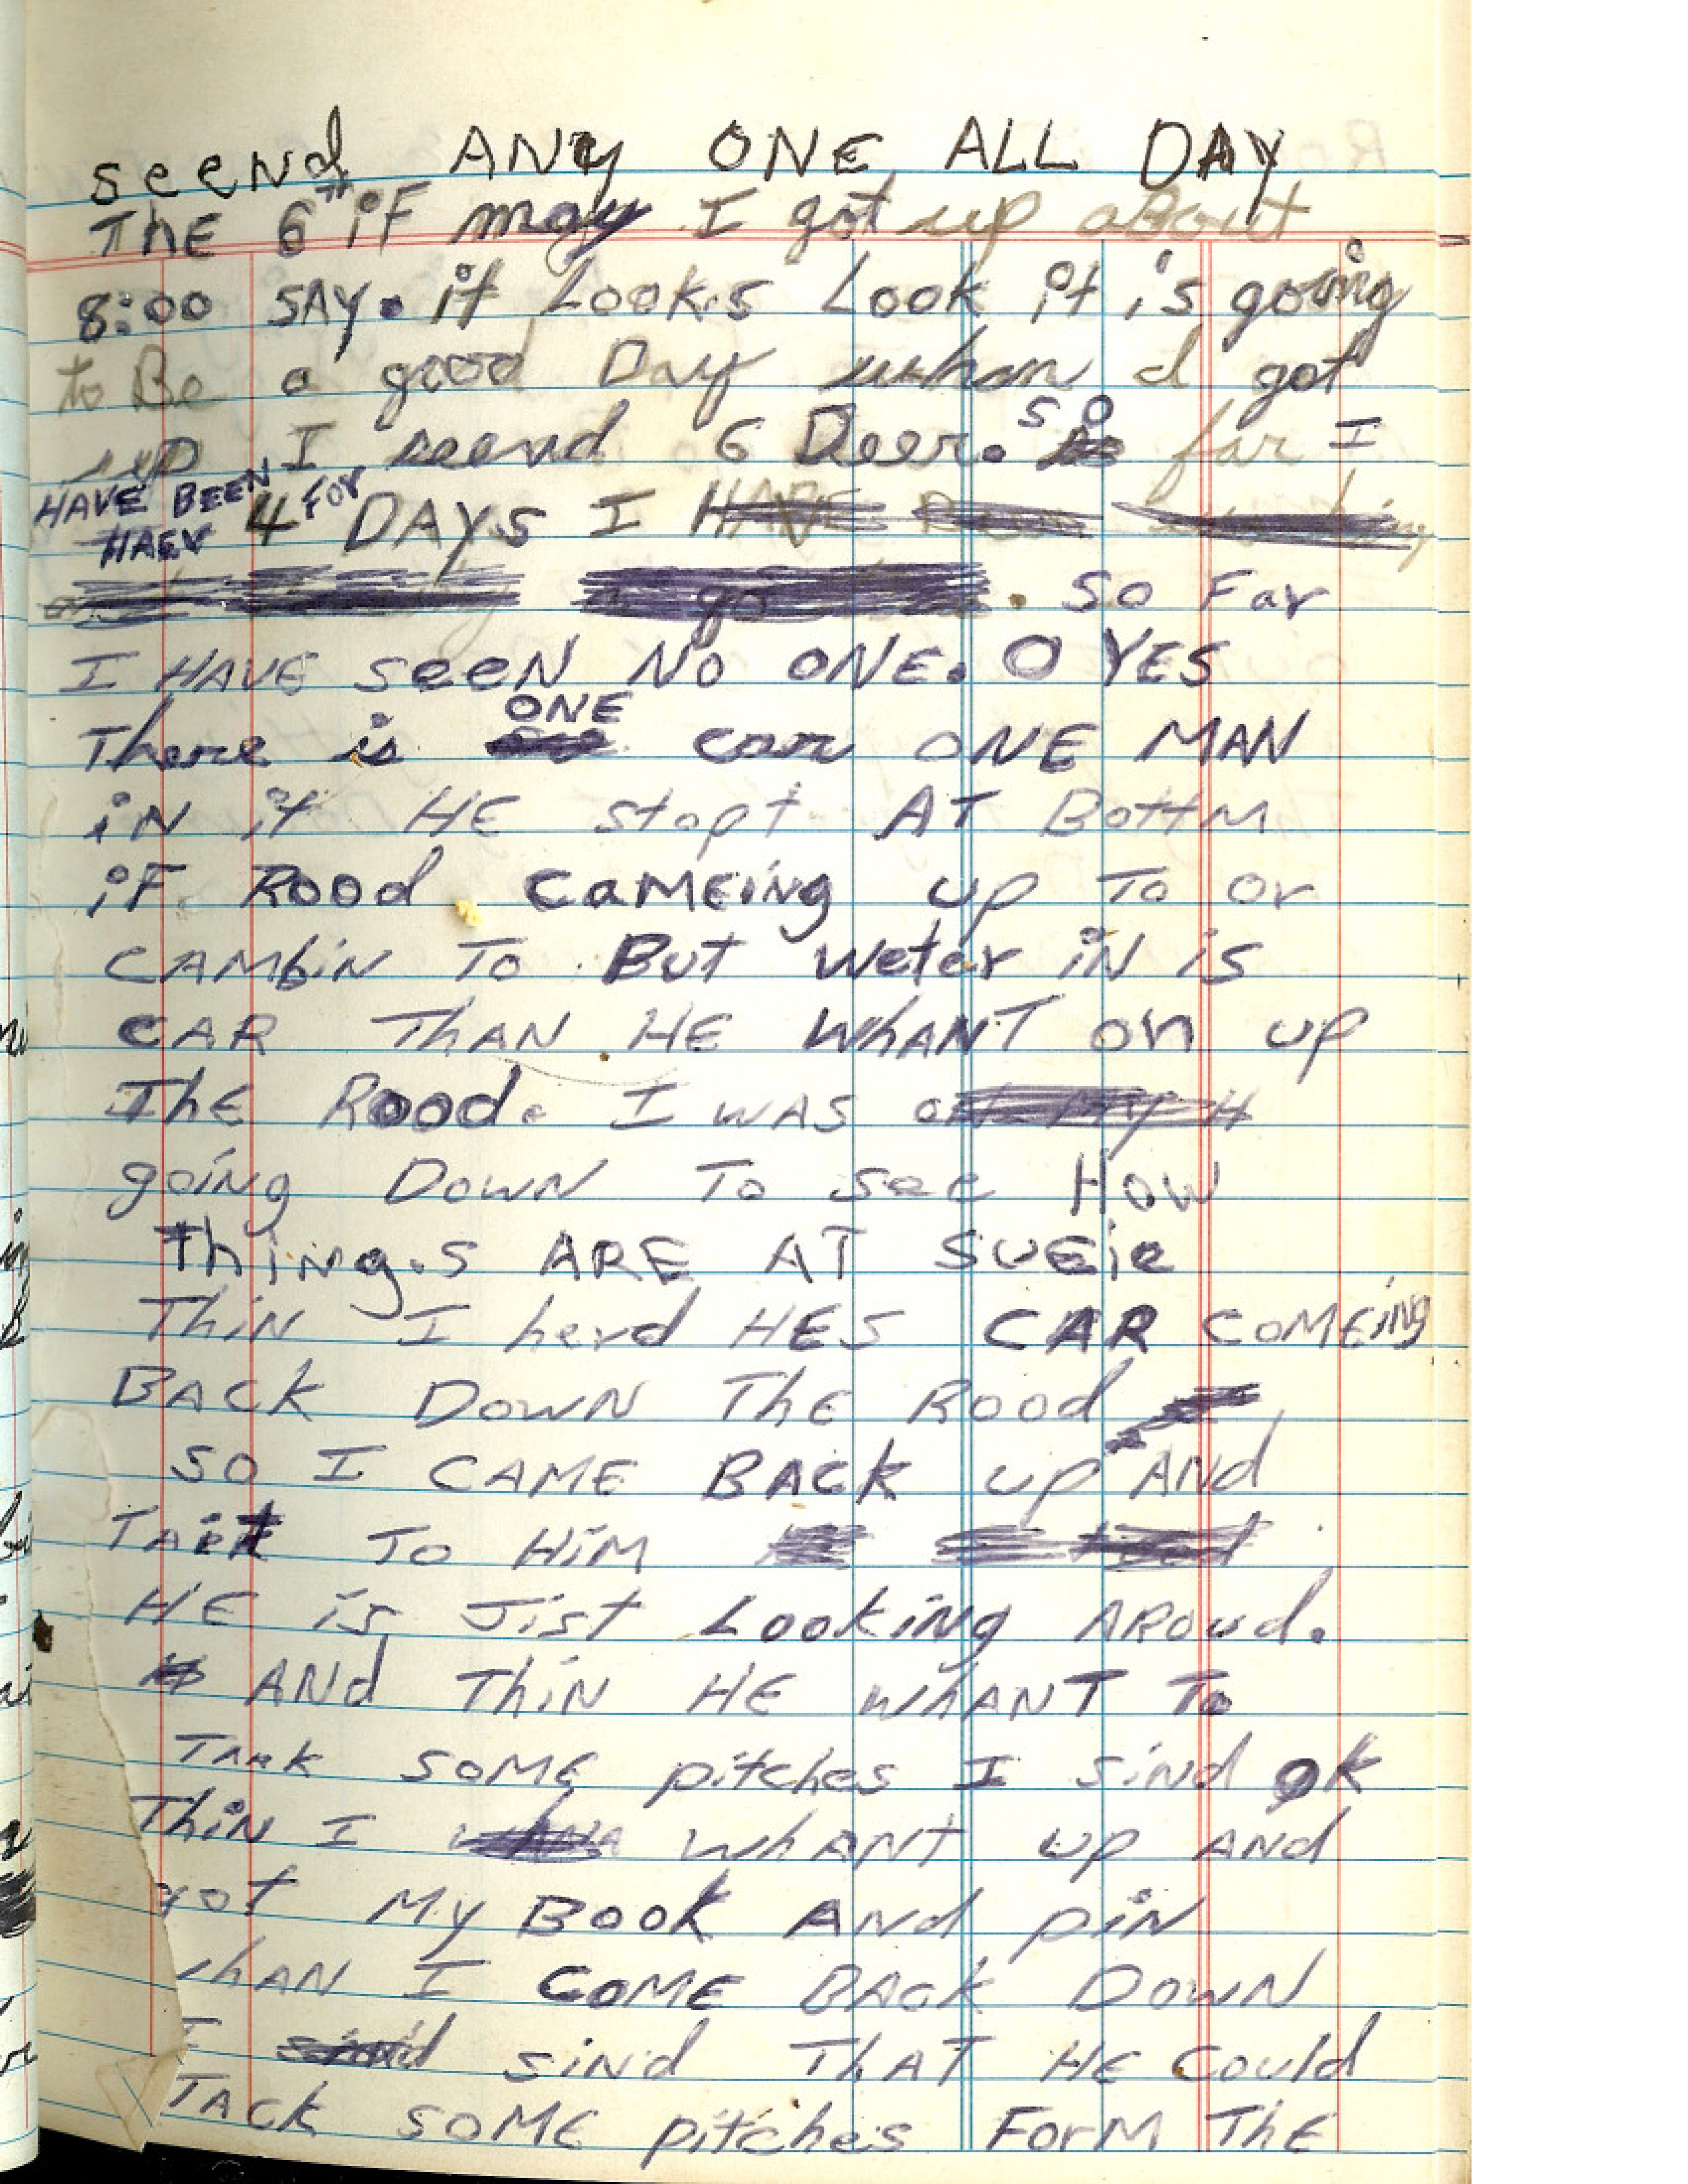 seend ANy ONE ALL DAY
ThE 6th iF may I got up about
8:00 SAY. it Look.s Look it is going
to Be a good Day whan I got
up I seend 6 Deer. so far I
HAVE BEEN for
HAEV 4 DAYS I HAVE Been
go . So Far
I HAVE seeN No ONE. O YES
There is ONE car ONE MAN
iN it HE stopt AT BottM
iF Rood cameing up To or
CAMbiN To But weter iN is
CAR ThAN HE whANT on up
ThE Rood. I was on My H
going Down To see How
Thing.s ARE AT SUEie
ThiN I herd HES CAR COMEing
BACK DOWN ThE Rood
so I CAME BACK up ANd
TAlkt To HiM
HE is Jist Looking AROUd.
ANd ThiN HE whANT To
TAAK SOME pitches I sind ok
ThiN I whANT up ANd
got My BOOK ANd piN
whAN I COME BACK DOWN
I sind sind THAT HE Could
TACK SOME pitches ForM ThE